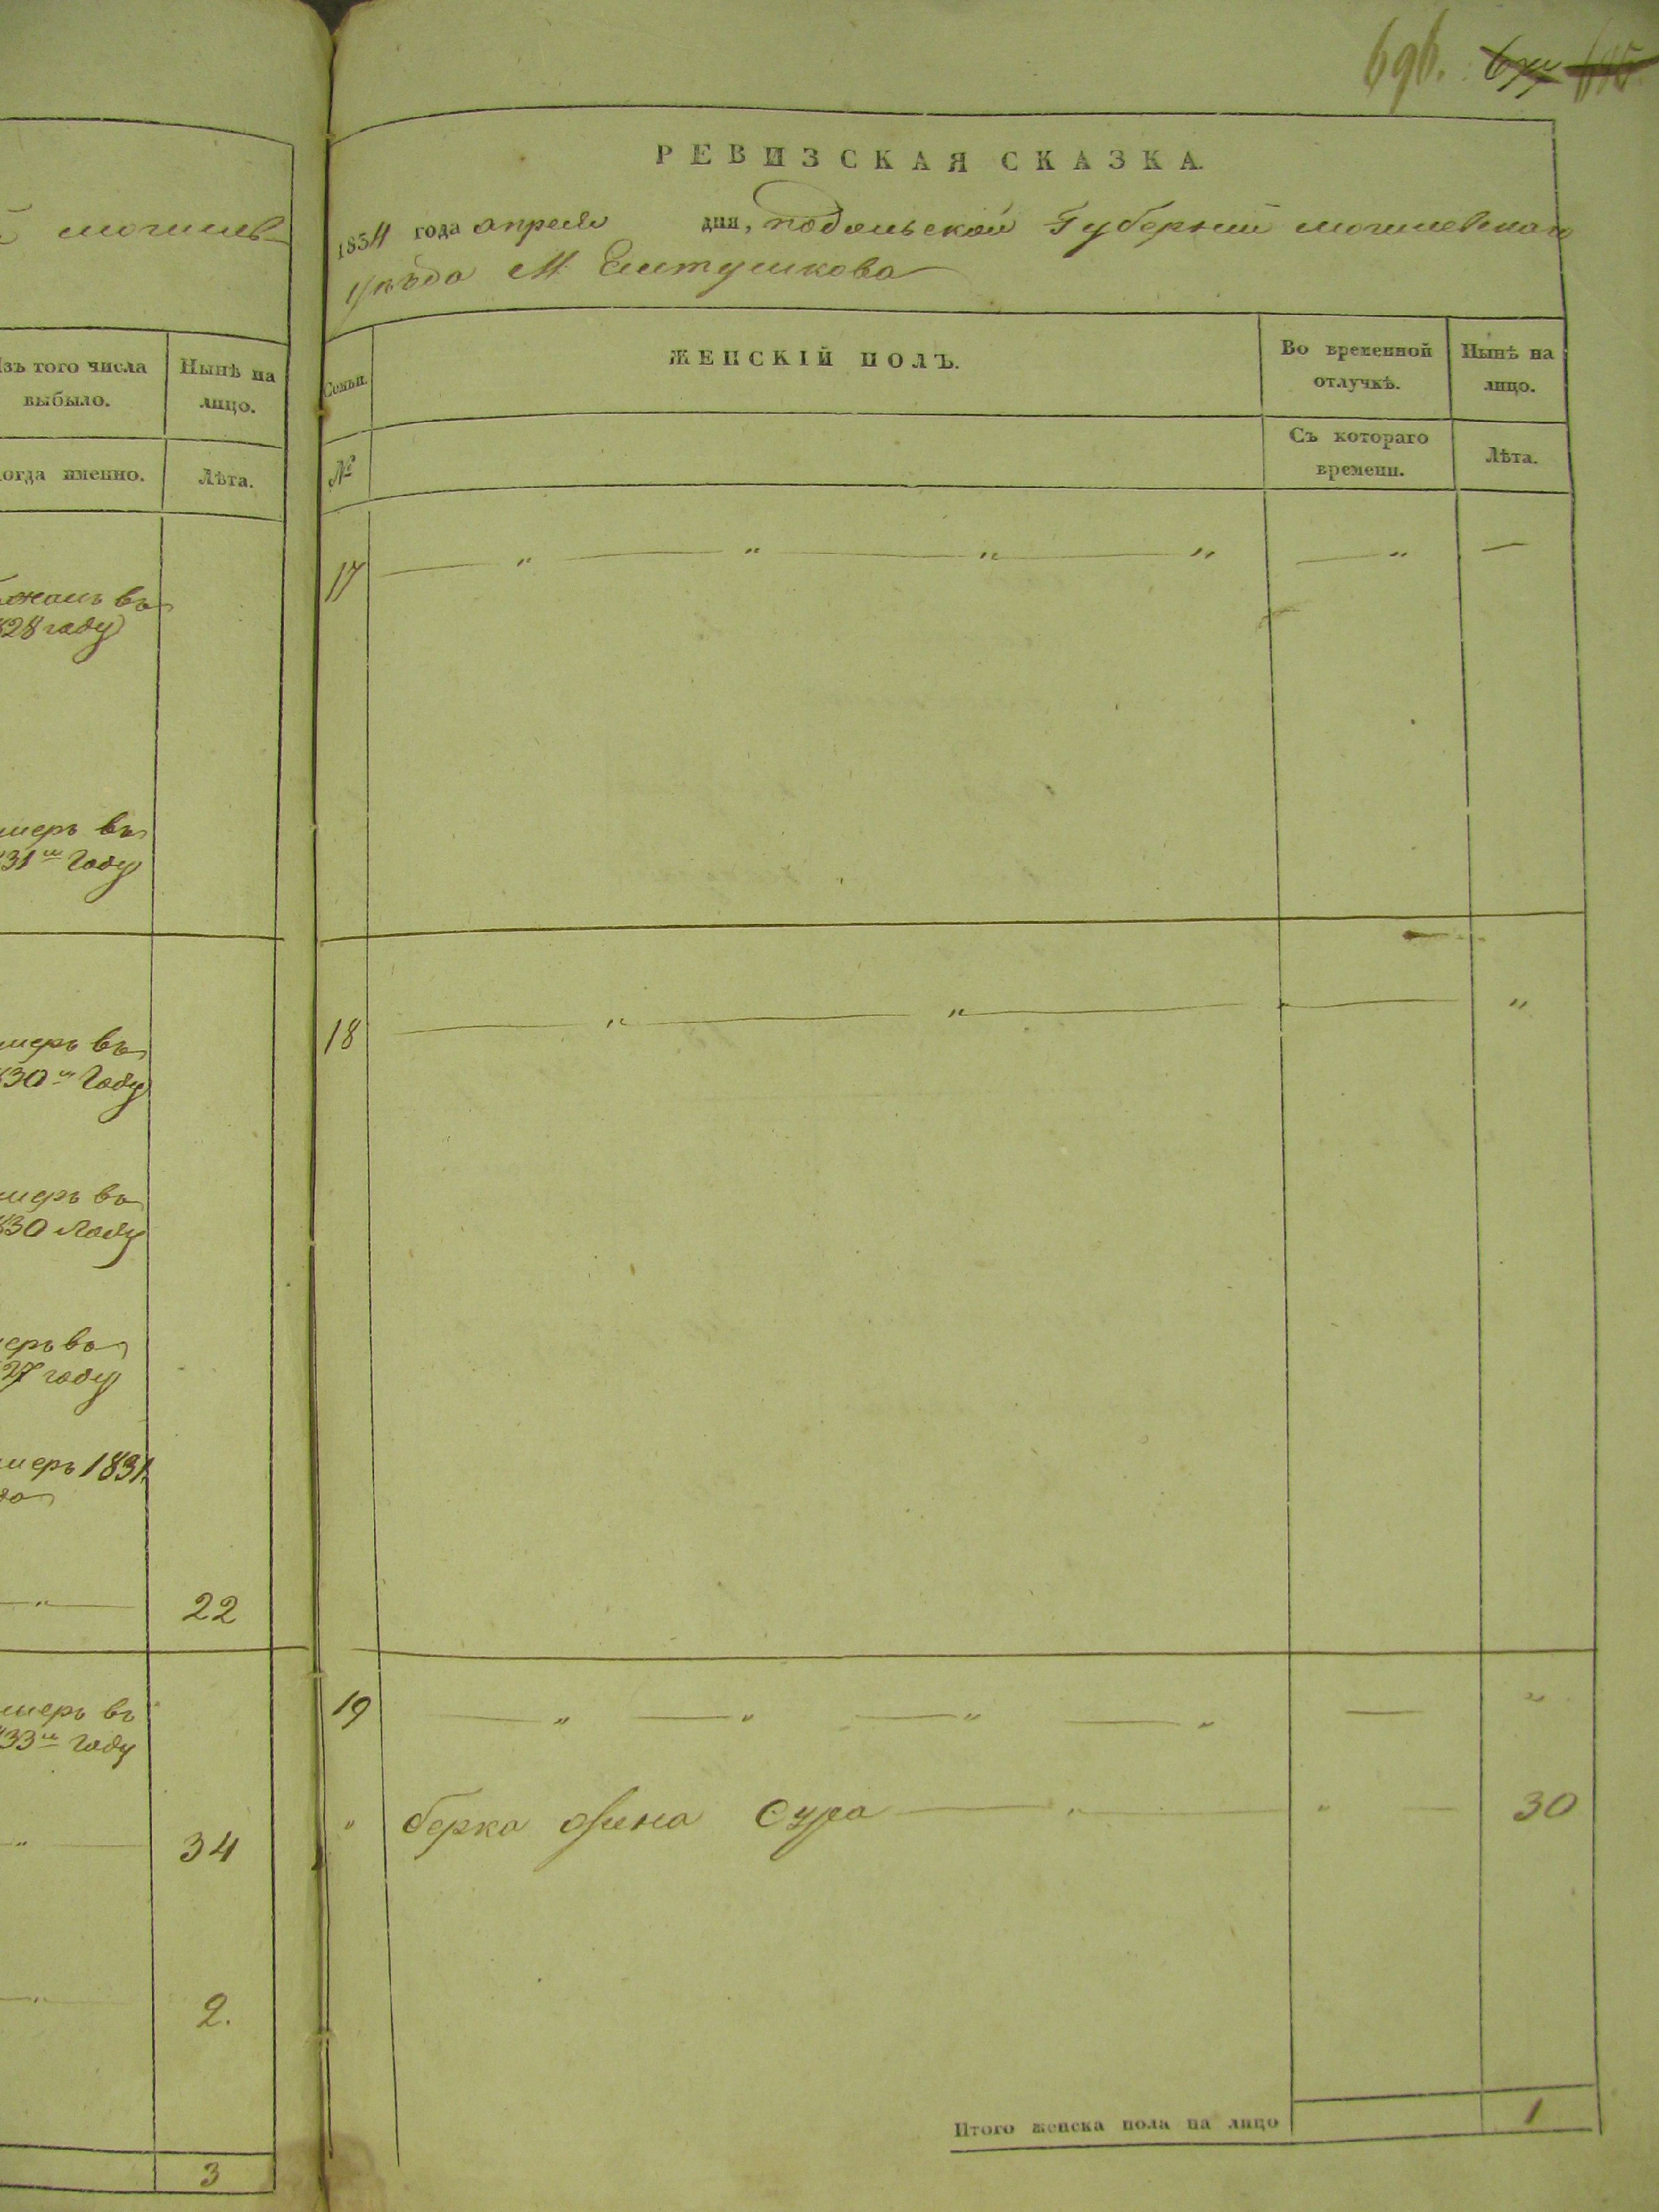 696.
й могилев-
Изъ того числа
выбыло.
Нынѣ на
лицо.
Когда именно.
Лѣта.
жалъ въ
828 году
умеръ въ
831м Году
умеръ въ
830м Году
умеръ въ
830 Году
умеръ въ
27 году
умеръ 1831.
да
— " —
22
умеръ въ
833м Году
— " —
34
— " —
2.
3
РЕВИЗСКАЯ СКАЗКА.
1834 года апреля дня, подольской Губерній могилевскаго
уѣзда М Елтушкова
Семьи.
ЖЕНСКІЙ ПОЛЪ.
Во временной
отлучкѣ.
Нынѣ на
лицо.
№
Съ котораго
времени.
Лѣта.
17 — " — " — " — " — " —
18 — " — " — — "
19 — " — " — " — " — "
" берка жена Сура — " — " — 30
Итого женска пола на лицо 1